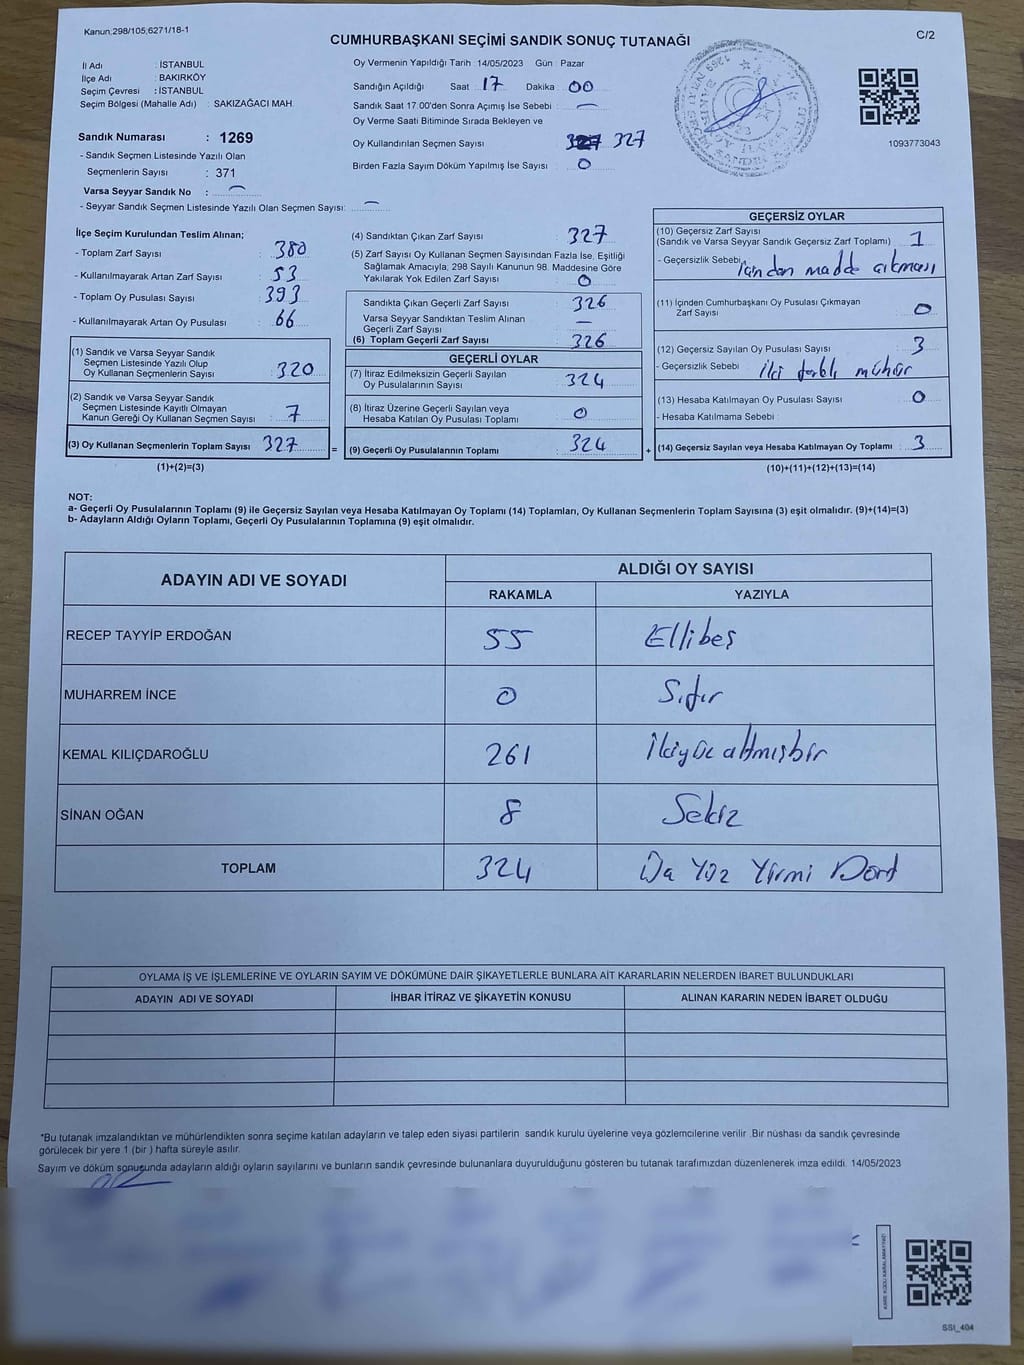 Kanun:298/105;6271/18-1
C/2
CUMHURBAŞKANI SEÇİMİ SANDIK SONUÇ TUTANAĞI
İl Adı : İSTANBUL
İlçe Adı : BAKIRKÖY
Seçim Çevresi : İSTANBUL
Seçim Bölgesi (Mahalle Adı) : SAKIZAĞACI MAH.
Sandık Numarası : 1269
- Sandık Seçmen Listesinde Yazılı Olan
Seçmenlerin Sayısı : 371
Varsa Seyyar Sandık No : —
- Seyyar Sandık Seçmen Listesinde Yazılı Olan Seçmen Sayısı: —
Oy Vermenin Yapıldığı Tarih : 14/05/2023 Gün : Pazar
Sandığın Açıldığı Saat 17 Dakika 00
Sandık Saat 17.00'den Sonra Açımış İse Sebebi : —
Oy Verme Saati Bitiminde Sırada Bekleyen ve
Oy Kullandırılan Seçmen Sayısı : 327 327
Birden Fazla Sayım Döküm Yapılmış İse Sayısı : 0
1093773043
İlçe Seçim Kurulundan Teslim Alınan;
- Toplam Zarf Sayısı : 380
- Kullanılmayarak Artan Zarf Sayısı : 53
- Toplam Oy Pusulası Sayısı : 393
- Kullanılmayarak Artan Oy Pusulası : 66
(1) Sandık ve Varsa Seyyar Sandık
Seçmen Listesinde Yazılı Olup
Oy Kullanan Seçmenlerin Sayısı : 320
(2) Sandık ve Varsa Seyyar Sandık
Seçmen Listesinde Kayıtlı Olmayan
Kanun Gereği Oy Kullanan Seçmen Sayısı : 7
(3) Oy Kullanan Seçmenlerin Toplam Sayısı : 327
(1)+(2)=(3)
(4) Sandıktan Çıkan Zarf Sayısı : 327
(5) Zarf Sayısı Oy Kullanan Seçmen Sayısından Fazla İse, Eşitliği
Sağlamak Amacıyla, 298 Sayılı Kanunun 98. Maddesine Göre
Yakılarak Yok Edilen Zarf Sayısı : 0
Sandıkta Çıkan Geçerli Zarf Sayısı : 326
Varsa Seyyar Sandıktan Teslim Alınan
Geçerli Zarf Sayısı : —
(6) Toplam Geçerli Zarf Sayısı : 326
GEÇERLİ OYLAR
(7) İtiraz Edilmeksizin Geçerli Sayılan
Oy Pusulalarının Sayısı : 324
(8) İtiraz Üzerine Geçerli Sayılan veya
Hesaba Katılan Oy Pusulası Toplamı : 0
= (9) Geçerli Oy Pusulalarının Toplamı : 324 +
GEÇERSİZ OYLAR
(10) Geçersiz Zarf Sayısı
(Sandık ve Varsa Seyyar Sandık Geçersiz Zarf Toplamı) : 1
- Geçersizlik Sebebi : içinden madde çıkması
(11) İçinden Cumhurbaşkanı Oy Pusulası Çıkmayan
Zarf Sayısı : 0
(12) Geçersiz Sayılan Oy Pusulası Sayısı : 3
- Geçersizlik Sebebi : iki farklı mühür
(13) Hesaba Katılmayan Oy Pusulası Sayısı : 0
- Hesaba Katılmama Sebebi :
(14) Geçersiz Sayılan veya Hesaba Katılmayan Oy Toplamı : 3
(10)+(11)+(12)+(13)=(14)
NOT:
a- Geçerli Oy Pusulalarının Toplamı (9) ile Geçersiz Sayılan veya Hesaba Katılmayan Oy Toplamı (14) Toplamları, Oy Kullanan Seçmenlerin Toplam Sayısına (3) eşit olmalıdır. (9)+(14)=(3)
b- Adayların Aldığı Oyların Toplamı, Geçerli Oy Pusulalarının Toplamına (9) eşit olmalıdır.
ADAYIN ADI VE SOYADI ALDIĞI OY SAYISI
RAKAMLA YAZIYLA
RECEP TAYYİP ERDOĞAN 55 Ellibeş
MUHARREM İNCE 0 Sıfır
KEMAL KILIÇDAROĞLU 261 İkiyüz altmışbir
SİNAN OĞAN 8 Sekiz
TOPLAM 324 Yüz Yirmi Dört
OYLAMA İŞ VE İŞLEMLERİNE VE OYLARIN SAYIM VE DÖKÜMÜNE DAİR ŞİKAYETLERLE BUNLARA AİT KARARLARIN NELERDEN İBARET BULUNDUKLARI
ADAYIN ADI VE SOYADI İHBAR İTİRAZ VE ŞİKAYETİN KONUSU ALINAN KARARIN NEDEN İBARET OLDUĞU
*Bu tutanak imzalandıktan ve mühürlendikten sonra seçime katılan adayların ve talep eden siyasi partilerin sandık kurulu üyelerine veya gözlemcilerine verilir .Bir nüshası da sandık çevresinde
görülecek bir yere 1 (bir ) hafta süreyle asılır.
Sayım ve döküm sonuşunda adayların aldığı oyların sayılarını ve bunların sandık çevresinde bulunanlara duyurulduğunu gösteren bu tutanak tarafımızdan düzenlenerek imza edildi. 14/05/2023
KARE KODU KARALAMAYINIZ!
SSI_404